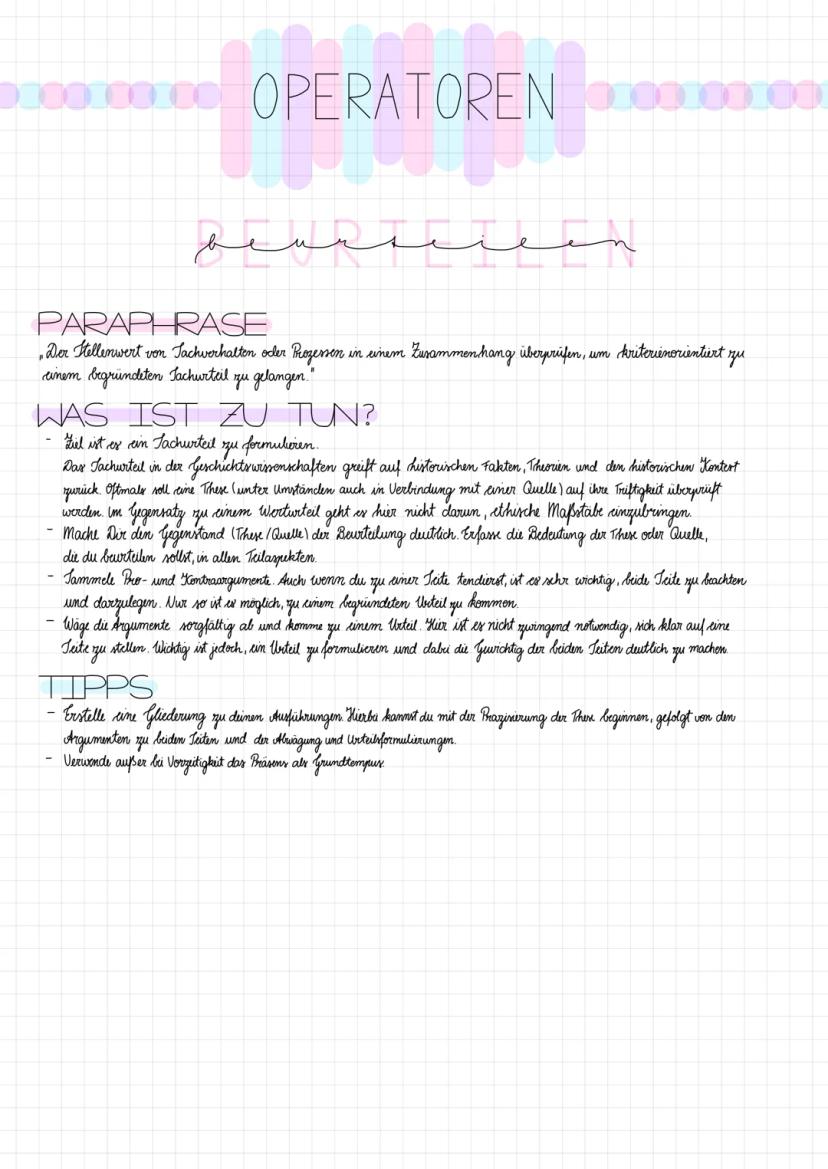 OPERATOREN
BEURTEILEN
beurteilen
PARAPHRASE
„Der Stellenwert von Sachverhalten oder Prozessen in einem Zusammenhang überprüfen, um kriterienorientiert zu
einem begründeten Sachurteil zu gelangen."
WAS IST ZU TUN?
- Ziel ist es ein Sachurteil zu formulieren.
Das Sachurteil in der Geschichtswissenschaften greift auf historischen Fakten, Theorien und den historischen Kontext
zurück. Oftmals soll eine These (unter Umständen auch in Verbindung mit einer Quelle) auf ihre Triftigkeit überprüft
werden. Im Gegensatz zu einem Werturteil geht es hier nicht darum, ethische Maßstäbe einzubringen.
- Mache Dir den Gegenstand (These/Quelle) der Beurteilung deutlich. Erfasse die Bedeutung der These oder Quelle,
die du beurteilen sollst, in allen Teilaspekten.
- Sammele Pro- und Kontraargumente. Auch wenn du zu einer Seite tendierst, ist es sehr wichtig, beide Seite zu beachten
und darzulegen. Nur so ist es möglich, zu einem begründeten Urteil zu kommen.
- Wäge die Argumente sorgfältig ab und komme zu einem Urteil. Hier ist es nicht zwingend notwendig, sich klar auf eine
Seite zu stellen. Wichtig ist jedoch, ein Urteil zu formulieren und dabei die Gewichtig der beiden Seiten deutlich zu machen.
TIPPS
- Erstelle eine Gliederung zu deinen Ausführungen. Hierbei kannst du mit der Präzisierung der These beginnen, gefolgt von den
Argumenten zu beiden Seiten und der Abwägung und Urteilsformulierungen.
- Verwende außer bei Vorzeitigkeit das Präsens als Grundtempus.